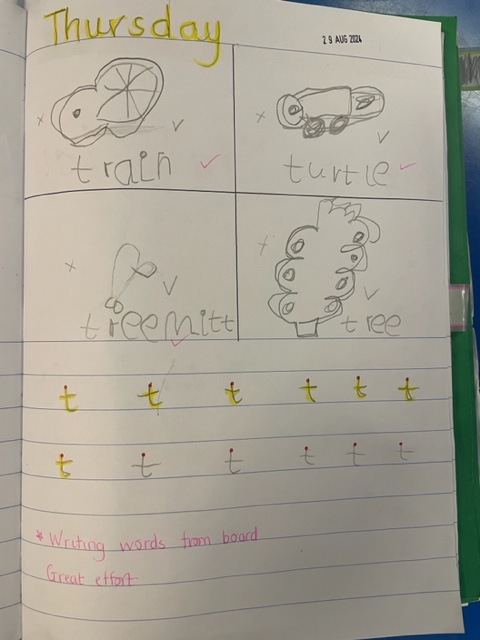 Thursday
29 AUG 2024
train
turtle
treemitt
tree
t t t t t t
t t t t t t
* Writing words from board
Great effort